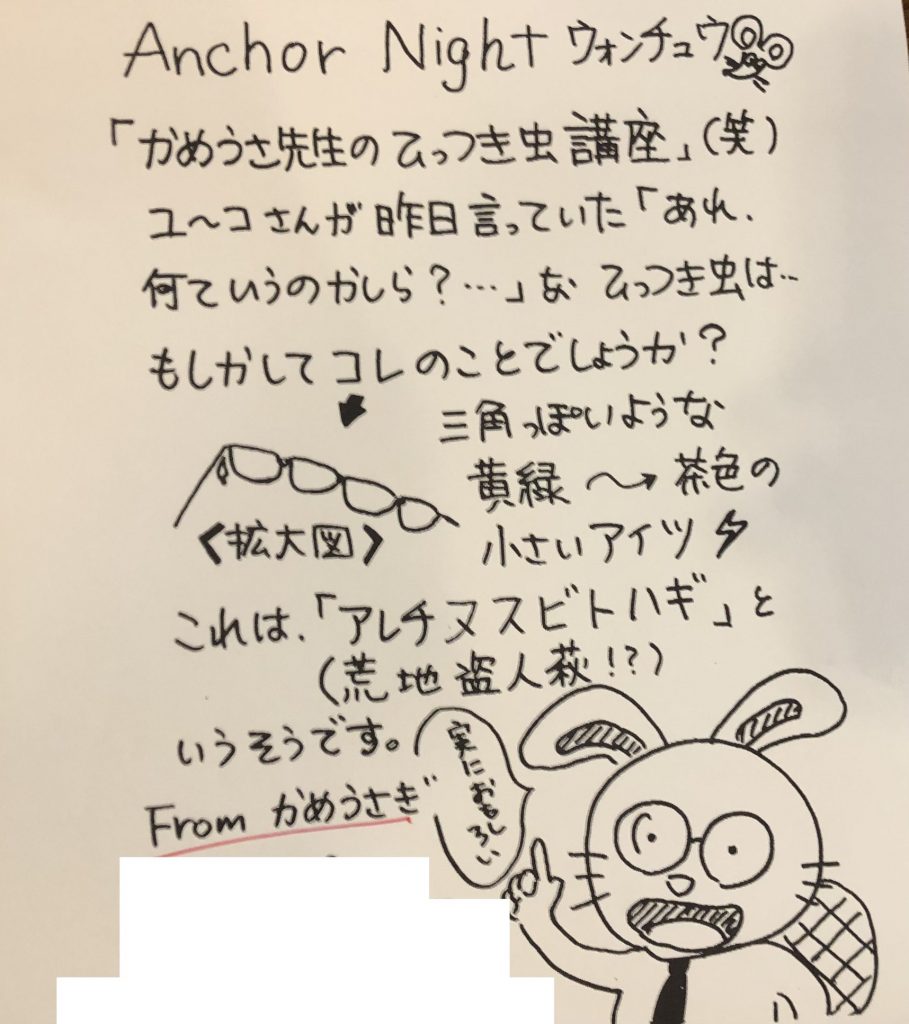 Anchor Night ウォンチュウ
「かめうさ先生のひっつき虫講座」(笑)
ユ〜コさんが昨日言っていた「あれ、
何ていうのかしら?…」な ひっつき虫は‥
もしかしてコレのことでしょうか?
三角っぽいような
黄緑〜→茶色の
小さいアイツ
<拡大図>
これは、「アレチヌスビトハギ」と
(荒地盗人萩!?)
いうそうです。
実におもしろい
From かめうさぎ